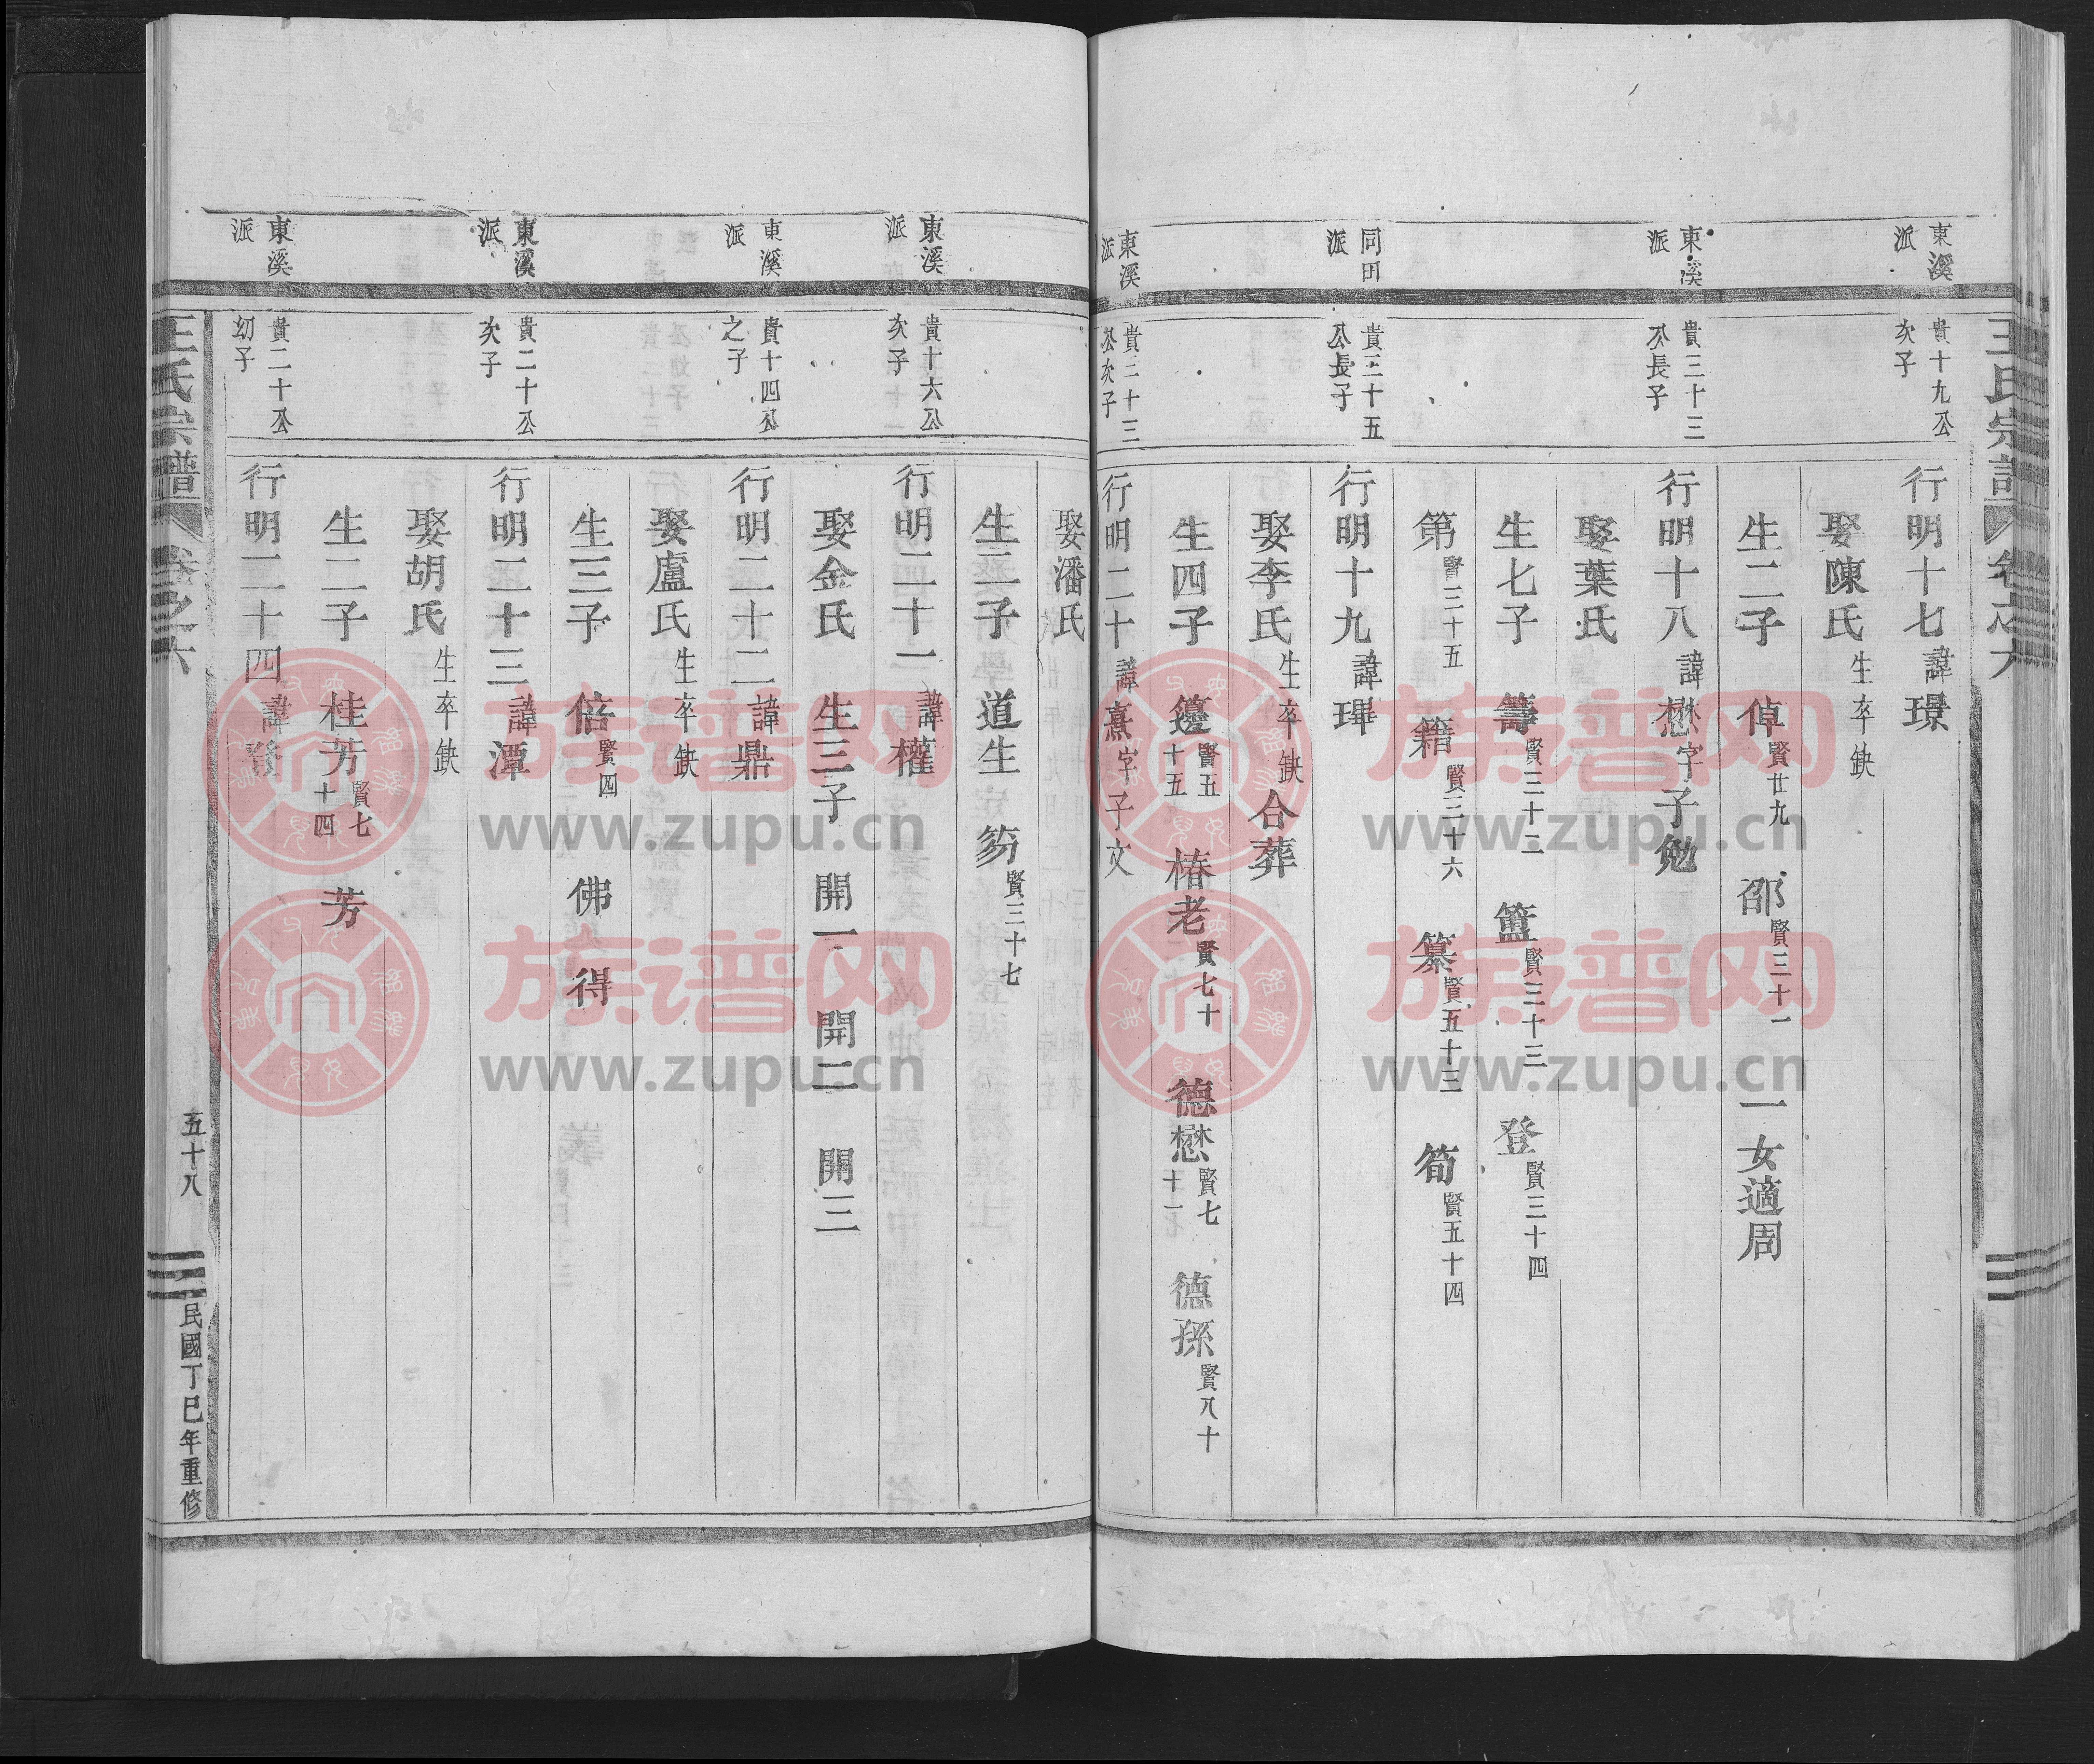 王氏宗譜 卷之六
東溪派
貴十九公次子
行明十七諱璟
娶陳氏生卒缺
生二子 倬賢廿九 邵賢三十一 一女適周
東溪派
貴三十三公長子
行明十八諱懋字子勉
娶葉氏
生七子 籌賢三十二 簠賢三十三 登賢三十四
第賢三十五 籍賢三十六 纂賢五十三 筍賢五十四
同田派
貴三十五公長子
行明十九諱琾
娶李氏生卒缺合葬
生四子 籩賢五十五 椿老賢七十 德懋賢七十一 德孫賢八十
東溪派
貴三十三公次子
行明二十諱熹字子文
娶潘氏
生二子 道生 竻賢三十七
東溪派
貴十六公次子
行明二十一諱權
娶金氏 生三子 開一 開二 開三
東溪派
貴十四公之子
行明二十二諱鼎
娶盧氏生卒缺
生三子 倍賢四 佛 得
東溪派
貴二十公次子
行明二十三諱潭
娶胡氏生卒缺
生二子 桂芳賢七十四 芳
東溪派
貴二十公幼子
行明二十四諱發
王氏宗譜 卷之六 五十八 民國丁巳年重修
族谱网
www.zupu.cn
族谱网
www.zupu.cn
族谱网
www.zupu.cn
族谱网
www.zupu.cn